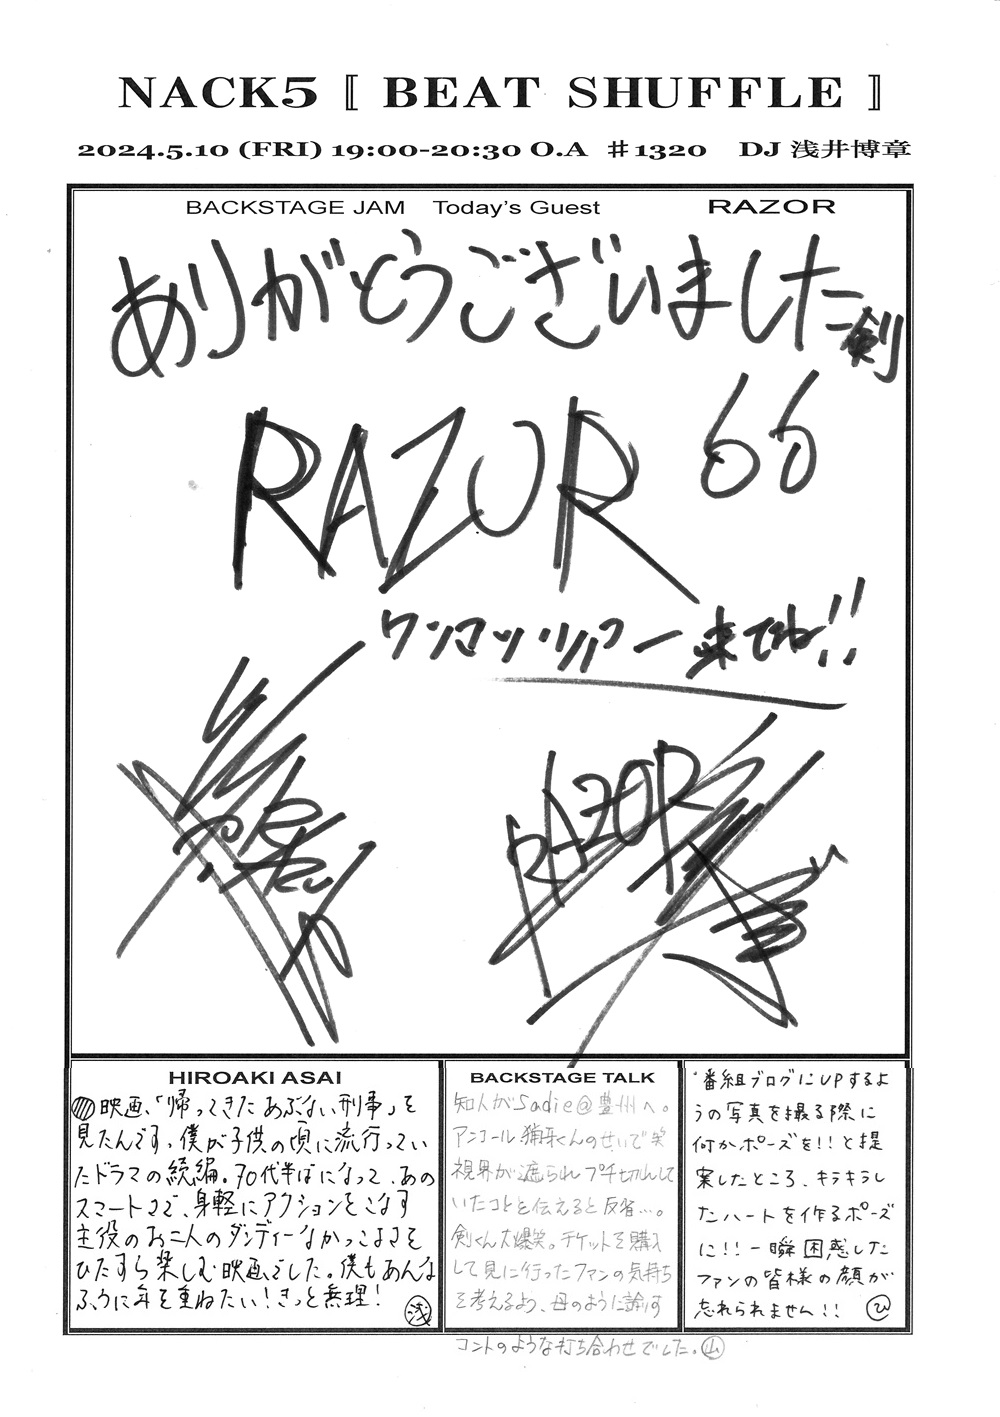 NACK5 〚 BEAT SHUFFLE 〛
2024.5.10 (FRI) 19:00-20:30 O.A ♯1320 DJ 浅井博章
BACKSTAGE JAM Today's Guest RAZOR
ありがとうございました
剣
RAZOR
ワンマンツアー来てね!!
RAZOR
HIROAKI ASAI
映画、「帰ってきたあぶない刑事」を
見たんです。僕が子供の頃に流行ってい
たドラマの続編。70代半ばになって、あの
スマートさで、身軽にアクションをこなす
主役のお二人のダンディーなかっこよさを
ひたすら楽しむ映画でした。僕もあんな
ふうに年を重ねたい!きっと無理! 浅
BACKSTAGE TALK
知人がSadie@豊洲へ。
アンコール 猟牙くんのせいで
視界が遮られ プチ切れして
いたコトを伝えると反省…。
剣くん大爆笑。チケットを購入
して見に行ったファンの気持ち
を考えるよう、母のように諭す
コントのような打ち合わせでした。山
番組ブログにUPするよ
うの写真を撮る際に
何かポーズを!!と提
案したところ、キラキラし
たハートを作るポーズ
に!!一瞬困惑した
ファンの皆様の顔が
忘れられません!! ひ